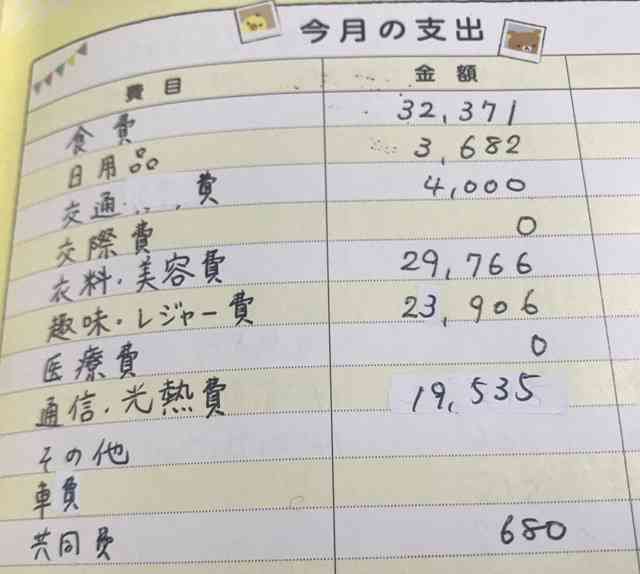 今月の支出
費目 金額
食費 32,371
日用品 3,682
交通費 4,000
交際費 0
衣料・美容費 29,766
趣味・レジャー費 23,906
医療費 0
通信・光熱費 19,535
その他
車費
共同費 680